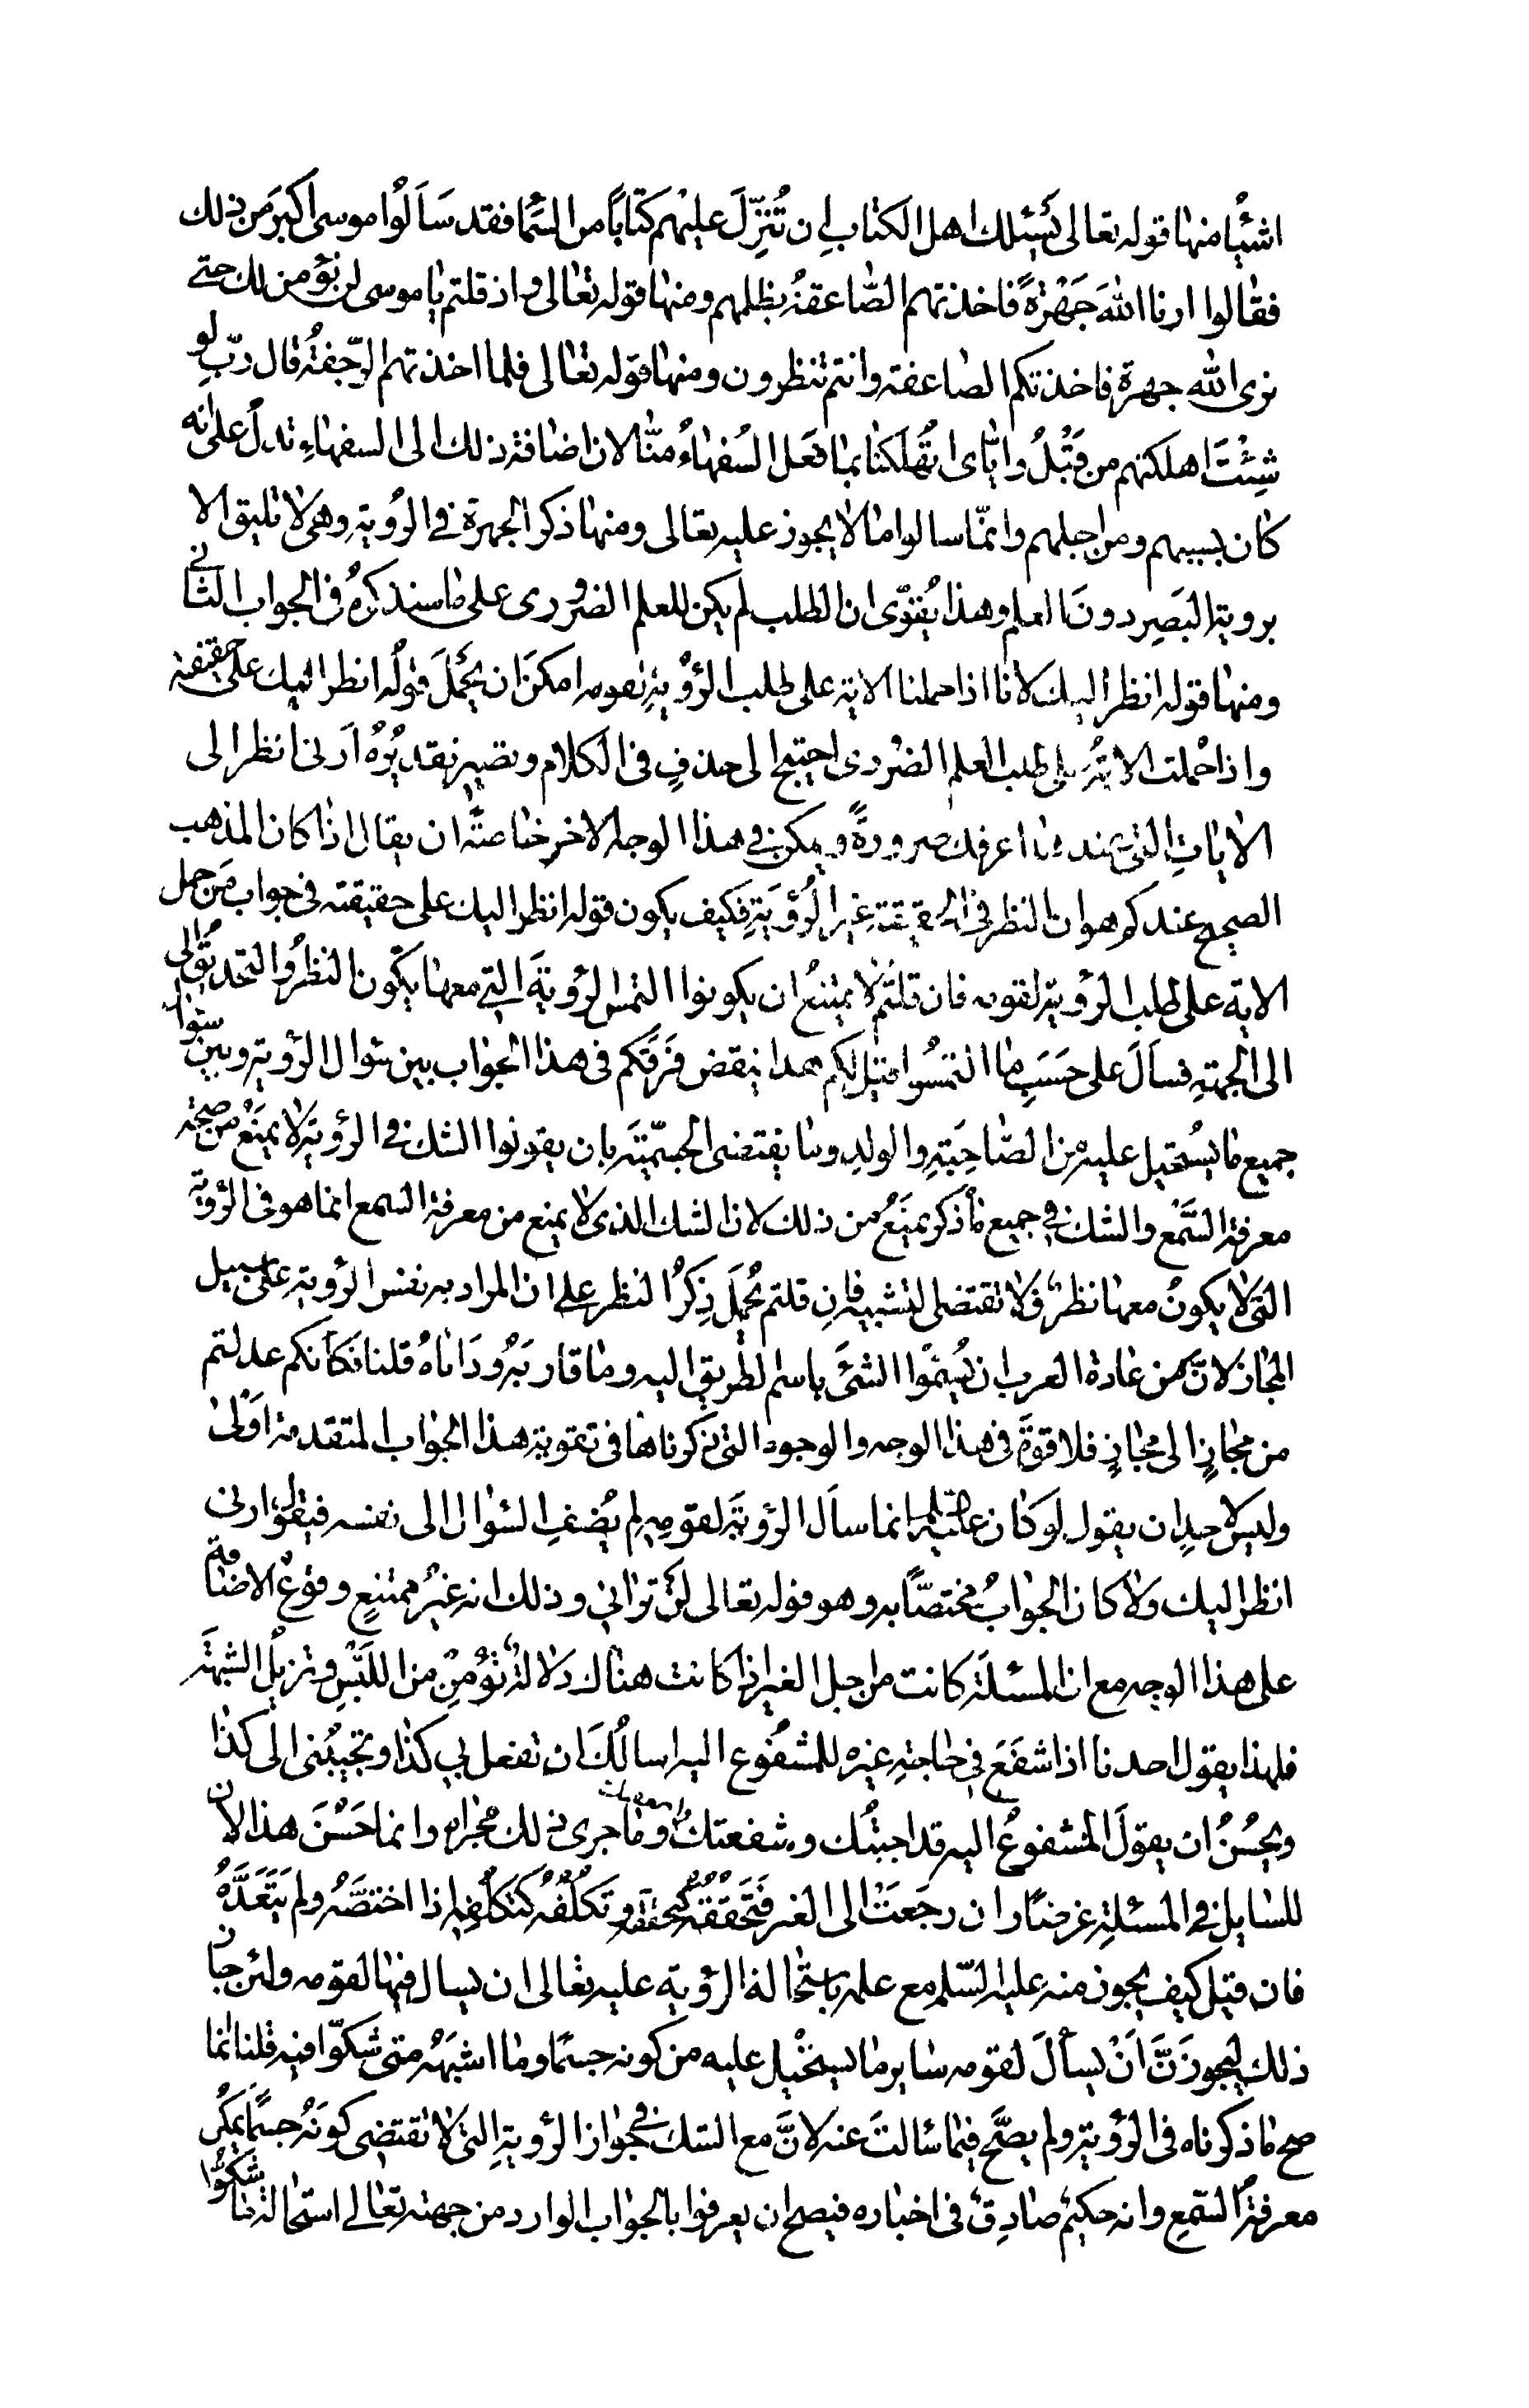 اشيٰا منها قوله تعالى يَسْئَلك اهل الكتاب ان تُنَزِّلَ عليهم كتٰاباً من السَّما فقد سَاَلُوا موسى اكبرَ من ذلك
فقالوا ارنا اللهَ جَهْرَةً فاخذتهم الصّاعقةُ بظلمهم ومنها قوله تعٰالى واذ قلتم يا موسى لن نؤمن لك حتى
نرى الله جهرة فاخذتكم الصاعقة وانتم تنظرون ومنها قوله تعٰالى فلما اخذتهم الرّجفةُ قال ربّ لو
شِئْتَ اهلكتهم من قَبْلُ وايّٰاى اتُهلكنٰا بما فعَل السُفهاءُ منّٰا لان اضافة ذلك الى السفهاءِ تدلّ على انه
كان بسببهم ومن اجلهم وانّما سالوا ما لا يجوز عليه تعالى ومنها ذكر الجهرة في الروُيةِ وهى لا تليق الا
بروية البَصَرِ دونَ العلم وهذا يُقوّى ان الطلب لم يكن للعلم الضرورى على ما سنذكرهُ فى الجواب الثانى
ومنها قوله انظر اليك لانا اذا حملنا الاية على طلب الرؤيةِ لقومه امكنَ ان يُحْمَلَ قولُه انظر اليك على حقيقته
واذا حُملت الايةُ على طلب العلم الضرورى احتيج الى حذفٍ فى الكلام ويصير تقديرُهُ اَرنى انظر الى
الاٰياتِ التى عندها اعرفك ضرورةً ويمكن فى هذا الوجه الاخر خاصّةً ان يقال اذا كان المذهب
الصحيح عندكم هو ان النظر فى الحقيقةِ غير الرُؤيَةِ فكيف يكون قوله انظر اليك على حقيقته فى جواب مَن حمل
الاية على طلب الرؤية لقومه فان قلتُم لا يمتنعُ ان يكونوا التمسُوا الرؤيةَ التى معها يكون النظرُ والتحديقُ الى
الى الجهةِ فساَلَ على حَسَبِ ما التمسُوا قيل لكم هذا ينقض فَرقَكم فى هذا الجواب بين سُوال الرؤية وبين سؤال
جميع ما يستحيل عليه من الصّاحِبَةِ والولدِ وما يقتضى الجسميّةَ بان يقولوا الشك فى الرؤية لا يمنَعُ من صحة
معرفة السَّمْع والشك فى جميع ما ذكر يمنَعُ من ذلك لان الشك الذى لا يمنع من معرفة السمع انما هو فى الرؤية
التى لا يكونُ معها نظرٌ ولا تقتضى التشبيه فان قلتم يُحمَلَ ذِكرُ النظر على ان المراد به نفس الرؤية على سبيل
المجاز لانّ من عادة العرب ان يُسَمُّوا الشئَ باسم الطريق اليه وما قاربَهُ ودَاناهُ قلنا فكانكم عدلتم
من مجازٍ الى مجازٍ فلا قوّةَ فى هذا الوجه والوجوه التى ذكرناها فى تقوية هذا الجواب المتقدمة اَوْلىٰ
وليس لاحدٍ ان يقول لو كان عليه السلم انما سأل الرؤيَةَ لقومِه لم يُضِفِ السُوال الى نفسه فيقول ارنى
انظر اليك ولا كان الجوابُ مختصّاً به وهو قوله تعالى لَنْ تراني وذلك انه غيرُ ممتنعٍ وقوعُ الاضافة
على هذا الوجه مع ان المسئلَة كانت من اجل الغير اذا كانت هناك دلالةٌ تُؤمِنُ من اللَبْسِ وتزيلُ الشبهَة
فلهذا يقول احدنا اذا شفَعَ فى حاجةِ غيره للمشفُوع اليه اسالُكَ ان تفعل بي كذا وتجيبُنى الى كذا
ويحسُنُ ان يقولَ المشفوعُ اليه قد اجبتُك وشفعتك وما جرى ذلك مجراه وانما حَسُنَ هذا لان
للسايل فى المسئلةِ غرضًا وان رجَعَتْ الى الغير فَتَحَقّقُهُ كتحققه وتَكَلّفُهُ كتكلّفِه اذا اختصَّهُ ولم يَتَعَدَّهُ
فان قيل كيف يجوز منه عليه السّلم مع علمه باستحالة الرؤيه عليه تعالى ان يسال فيها لقومه ولئن جاز
ذلك ليجوزَنَّ اَنْ يسألَ لقومه سٰاير ما يستحيل عليه من كونه جسمًا وما اشبَهَهُ متى شكوّا فيه قلنا انما
صح ما ذكرناه فى الرُؤية ولم يصحَّ فيما سَالتَ عنه لانَّ مع الشك فى جواز الرؤيةِ التى لا تقتضى كونَهُ جسمًا يمكن
معرفةُ السّمعِ وانه حكيمٌ صادِقٌ فى اخباره فيصح ان يعرفوا بالجواب الوارد من جهته تعالى استحالة ما شكّوا